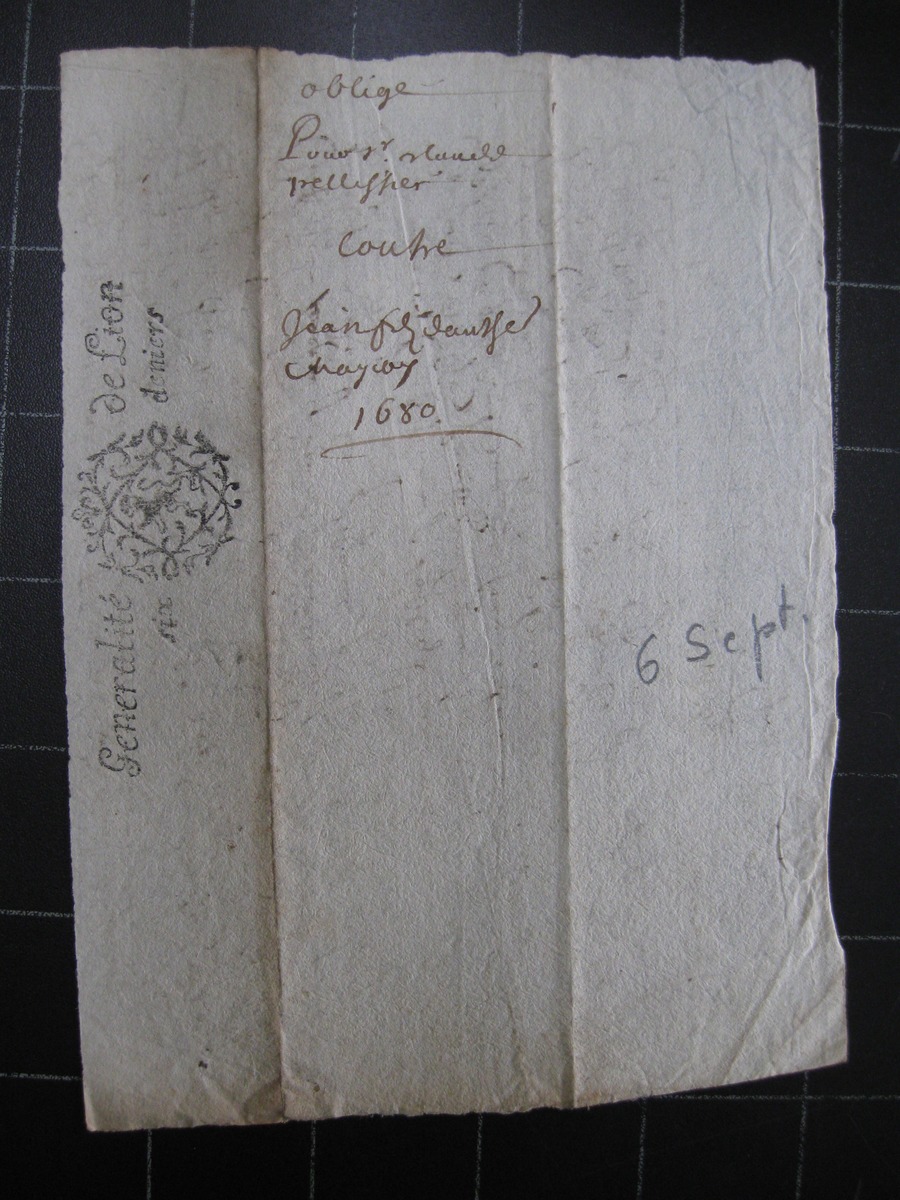 oblige
Pour sr. claude
pellissier
Contre
Jean filz dauthe
1680
Generalité de Lion
six deniers
6 Sept.